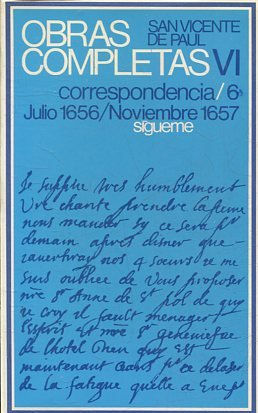 OBRAS
COMPLETAS VI
SAN VICENTE
DE PAUL
correspondencia/6
Julio 1656/Noviembre 1657
sígueme
Je supplie tres humblement
Vre charite prendre la peine
nous mander sy ce sera pr
demain apres disner que
nos 4 sœurs je me
suis oubliee de vous proposer
nre Sr Anne de St pol de quy
je croy il fault menager
l'esprit et nre Sr geneniefue
de lhotel Dieu quy est
maintenant ceans pr ce delaser
de la fatigue quelle a